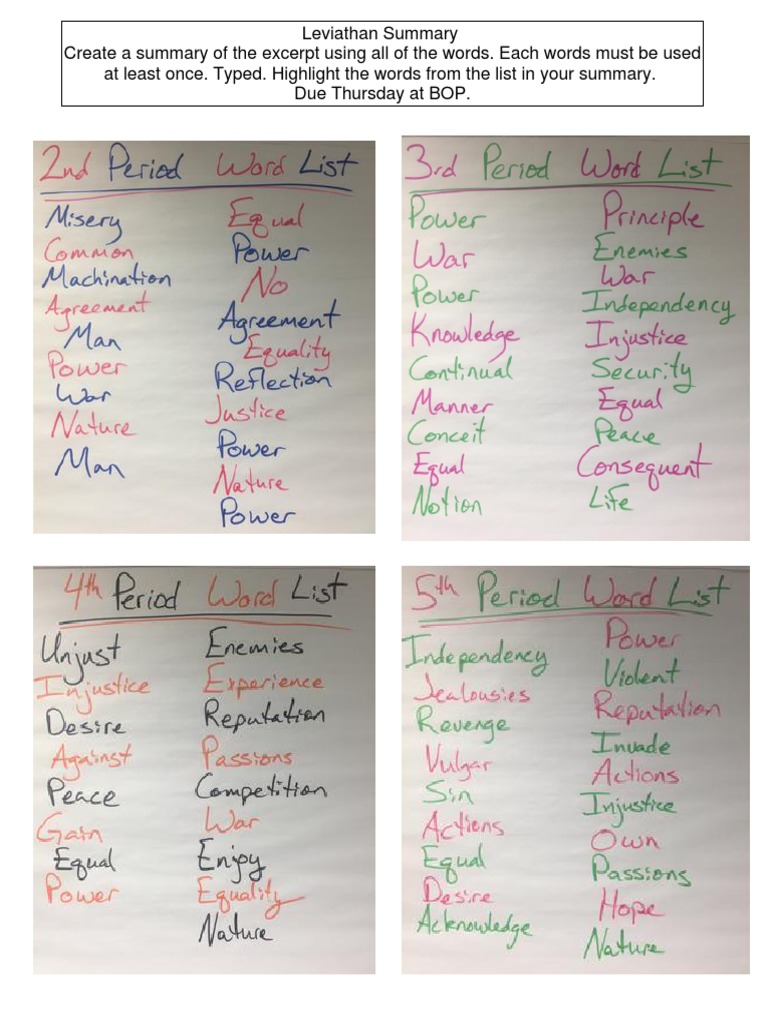 Leviathan Summary
Create a summary of the excerpt using all of the words. Each words must be used
at least once. Typed. Highlight the words from the list in your summary.
Due Thursday at BOP.
2nd Period Word List
Misery
Common
Machination
Agreement
Man
Power
War
Nature
Man
Equal
Power
No
Agreement
Equality
Reflection
Justice
Power
Nature
Power
3rd Period Word List
Power
War
Power
Knowledge
Continual
Manner
Conceit
Equal
Notion
Principle
Enemies
War
Independency
Injustice
Security
Equal
Peace
Consequent
Life
4th Period Word List
Unjust
Injustice
Desire
Against
Peace
Gain
Equal
Power
Enemies
Experience
Reputation
Passions
Competition
War
Enjoy
Equality
Nature
5th Period Word List
Independency
Jealousies
Revenge
Vulgar
Sin
Actions
Equal
Desire
Acknowledge
Power
Violent
Reputation
Invade
Actions
Injustice
Own
Passions
Hope
Nature